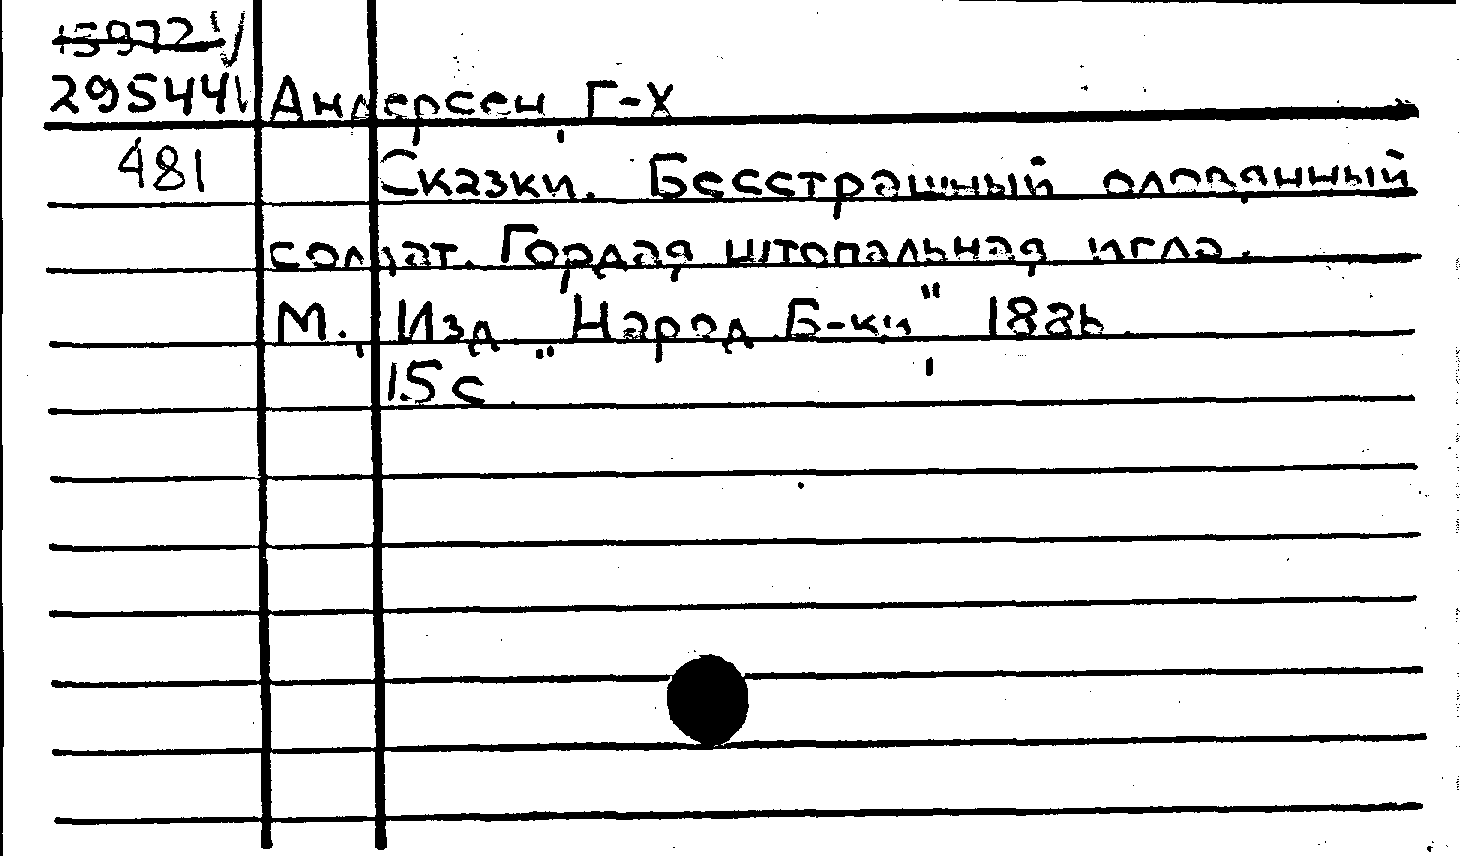 15972
29544 Андерсен, Г-Х
481 Сказки. Бесстрашный оловянный
солдат. Гордая штопальная игла.
М., Изд. „Народ. Б-ки",
15 с.